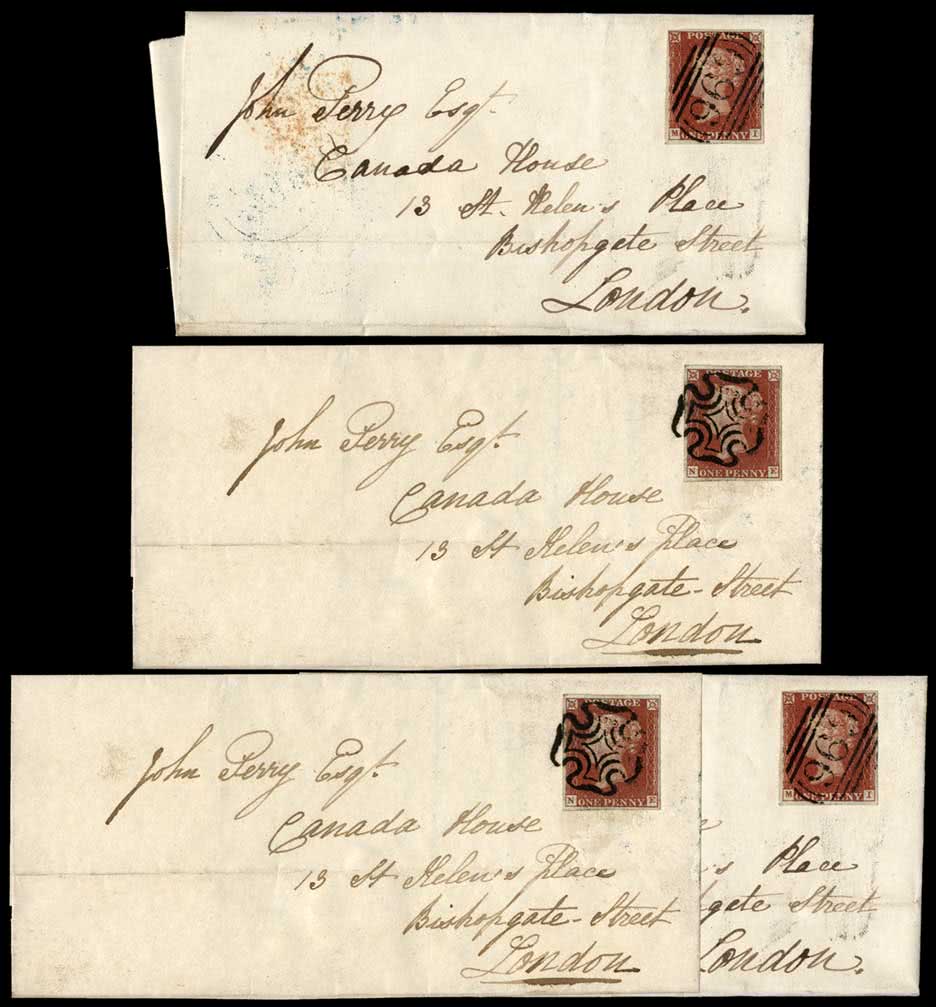 POSTAGE
M ONE PENNY I
John Perry Esqr.
Canada House
13 St. Helen's Place
Bishopgate Street
London.
POSTAGE
N ONE PENNY E
John Perry Esqr.
Canada House
13 St Helen's Place
Bishopgate-Street
London
POSTAGE
N ONE PENNY E
John Perry Esqr.
Canada House
13 St Helen's Place
Bishopgate-Street
London
POSTAGE
M ONE PENNY I
's Place
gate Street
London.